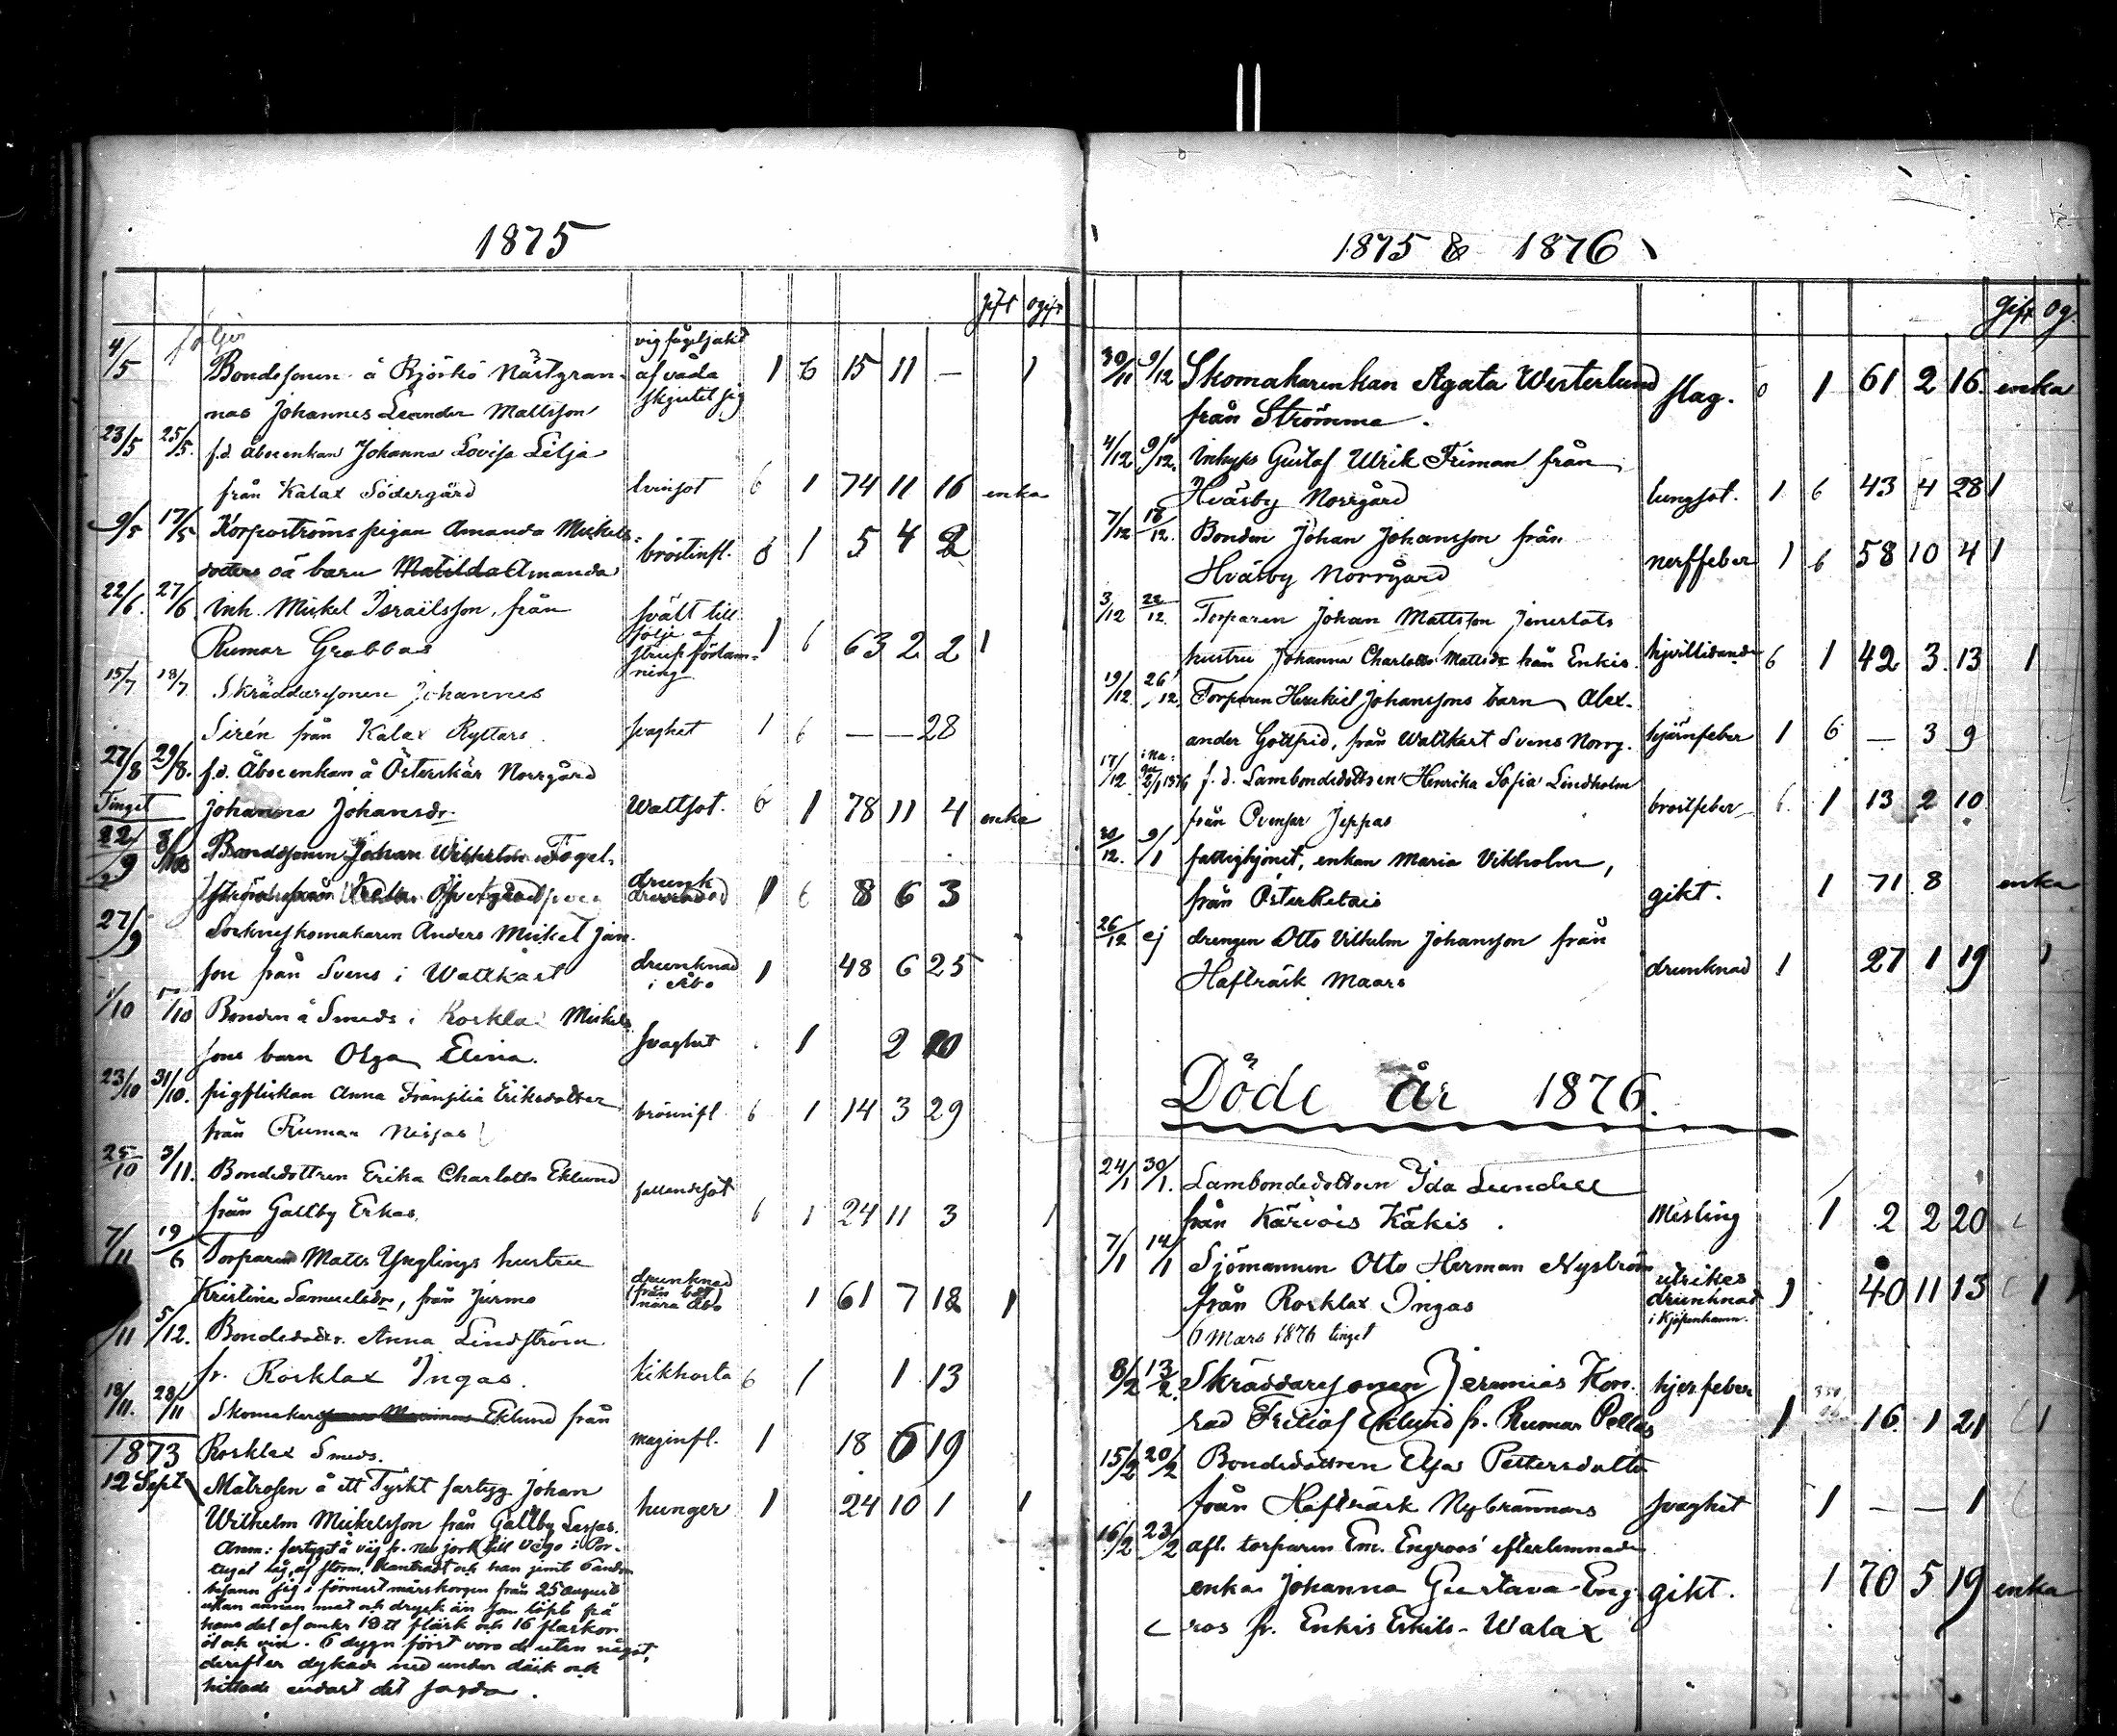 1875
gift ogift
följer
4/5 Bondesonen å Björkö Nästgran- vig fågeljakt af våda skjutet sig 1 6 15 11 — 1
nas Johannes Leander Mattsson
23/5 25/5. f.d. åboenkan Johanna Lovisa Lilja
från Kalax Södergård 6 1 74 11 16 enka
9/5 17/5 Korpoströms pigan Amanda Mickels-
dotters oä barn Matilda Amanda bröstinfl. 6 1 5 4 2
22/6. 27/6 Inh. Mickel Israëlsson, från
Rumar Grabbas svält till följe af strupförlam- ning 1 6 63 2 2 1
15/7 18/7. Skräddaresonen Johannes
Sirén från Kalax Ryttars. svaghet 1 6 — — 28
27/8 29/8. f.d. Åboenkan å Österskär Norrgård
Tinget Johanna Johansdr. Wattsot. 6 1 78 11 4 enka
22/9 Bondesonen Johan Wilhelm Fogel-
ström från Öfvergård drunk 1 6 8 6 3
27/9 Sockneskomakaren Anders Mickel Jan-
son från Svens i Wattkast drunknad i Åbo 1 48 6 25
1/10 5/10 Bonden å Smeds i Rosklax Mickels
sons barn Olga Elina. svaghet 1 2 20
23/10 31/10. pigflickan Anna Fransilia Eriksdotter
från Rumar Nissas bröstinfl 6 1 14 3 29
25/10 3/11. Bondedottren Erika Charlotta Eklund
från Gallby Erkas. fallandesot 6 1 24 11 3 1
7/11 19/6 Torparen Matts Ynglings hustru
Kristina Samuelsdr, från Jurmo drunknad (från båt) nära Åbo 1 61 7 18 1
/11 5/12. Bondedotr. Anna Lindström
fr. Rosklax Ingas. Kikhosta 6 1 1 13
18/11. 28/11 Skomakare Eklund från
1873 Rosklax Smeds. maginfl. 1 18 6 19
12 Sept Matrosen å ett Tyskt fartyg Johan
Wilhelm Mickelsson från Gallby Lassas. hunger 1 24 10 1 1
Anm: fartyget å väg fr. New jork till Vigo i Por-
tugal låg af storm, kantradt och han jemte 6 andra
befann sig i förmert märskorgen från 25 augusti
utan annan mat och dryck än som löpts frå
hans del af omkr 19 ℔ fläsk och 16 flaskor
öl och vin. 6 dygn först voro de utan något,
derefter dykade ned under däck och
hittade endast det sagda.
1875 & 1876
gift og.
30/11 9/12 Skomakarenkan Agata Westerlund
från Strömma. slag. 0 1 61 2 16. enka
4/12 9/12. Inhyses Gustaf Ulrik Friman från
Hväsby Norrgård lungsot. 1 6 43 4 28 1
7/12 18/12. Bonden Johan Johansson från
Hväsby Norrgård nerffeber 1 6 58 10 4 1
3/12 22/12. Torparen Johan Mattsson Jenertots
hustru Johanna Charlotta Mattsdr från Enkis. hjertlidande 6 1 42 3 13 1
19/12 26/12. Torparen Hesekiel Johanssons barn Alex-
ander Gottfrid, från Wattkast Svens Norrg. hjärnfeber 1 6 — 3 9
17/12 i Nagu 2/1 1876 f.d. Lambondedottren Henrika Sofia Lindholm
från Ovensor Jeppas bröstfeber 6 1 13 2 10
30/12. 9/1 fattighjonet, enkan Maria Vikholm,
från Österketais gikt. 1 71 8 enka
26/12 ej drengen Otto Vilhelm Johansson från
Hafträsk Maars drunknad 1 27 1 19 1
Döde år 1876.
24/1 30/1. Lambondedottren Ida Lundell
från Kärvois Käkis. Mesling 1 2 2 20
7/1 14/1 Sjömannen Otto Herman Nyström
från Rosklax Ingas utrikes drunknad i Kjöpenhamn. 1 40 11 13 1
6 Mars 1876 tinget
8/2 13/2. Skräddaresonen Jeremias Kon-
rad Fritiof Eklund fr. Rumar Pellas 1 16. 1 21 1
15/2 20/2 Bondedottren Elsa Pettersdotter
från Hafträsk Nybrännars svaghet 1 — — 1
16/2 23/2 afl. torparen Em. Engroos' efterlemnade
enka Johanna Gustava Eng- gikt. 1 70 5 19 enka
ros fr. Enkis Eskils-Walax